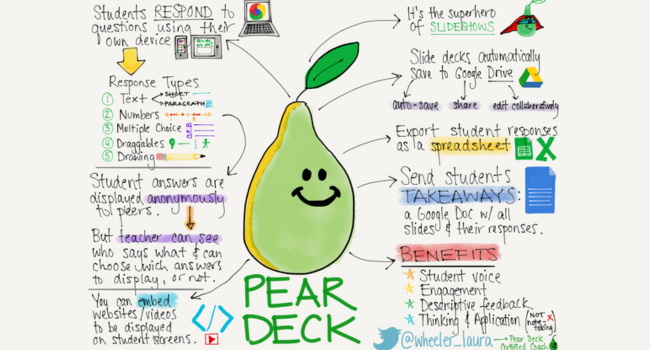 Students RESPOND to
questions using their
own device
Response Types
① Text SHORT
PARAGRAPH
② Numbers
③ Multiple Choice
④ Draggables
⑤ Drawing
Student answers are
displayed anonymously
to peers.
But teacher can see
who says what & can
choose wich answers
to display, or not.
You can embed
websites/videos
to be displayed
on student screens.
PEAR
DECK
It's the superhero
of SLIDESHOWS
Slide decks automatically
save to Google Drive
auto-save share edit collaboratively
Export student responses
as a spreadsheet
Send students
TAKEAWAYS:
a Google Doc w/ all
slides & their responses.
BENEFITS
Student voice
Engagement
Descriptive feedback
Thinking & Application (NOT note-taking)
@wheeler_laura → Pear Deck
Certified Coach